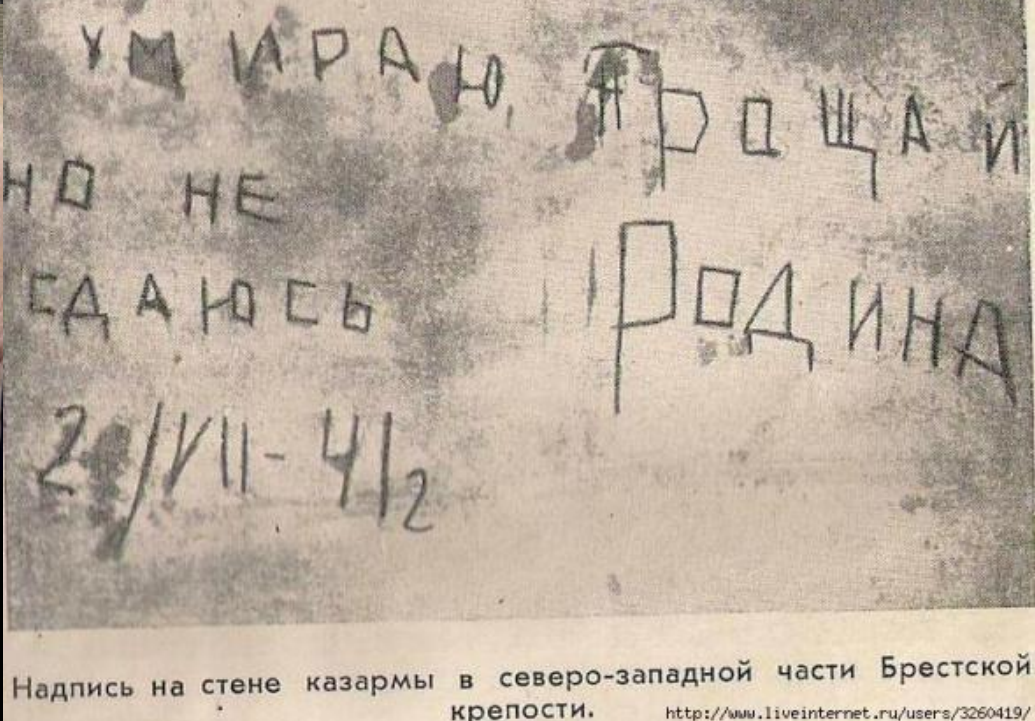 УМИРАЮ,
НО НЕ
СДАЮСЬ
ПРОЩАЙ
РОДИНА
/VII-41г
Надпись на стене казармы в северо-западной части Брестской
крепости.
http://www.liveinternet.ru/users/3260419/